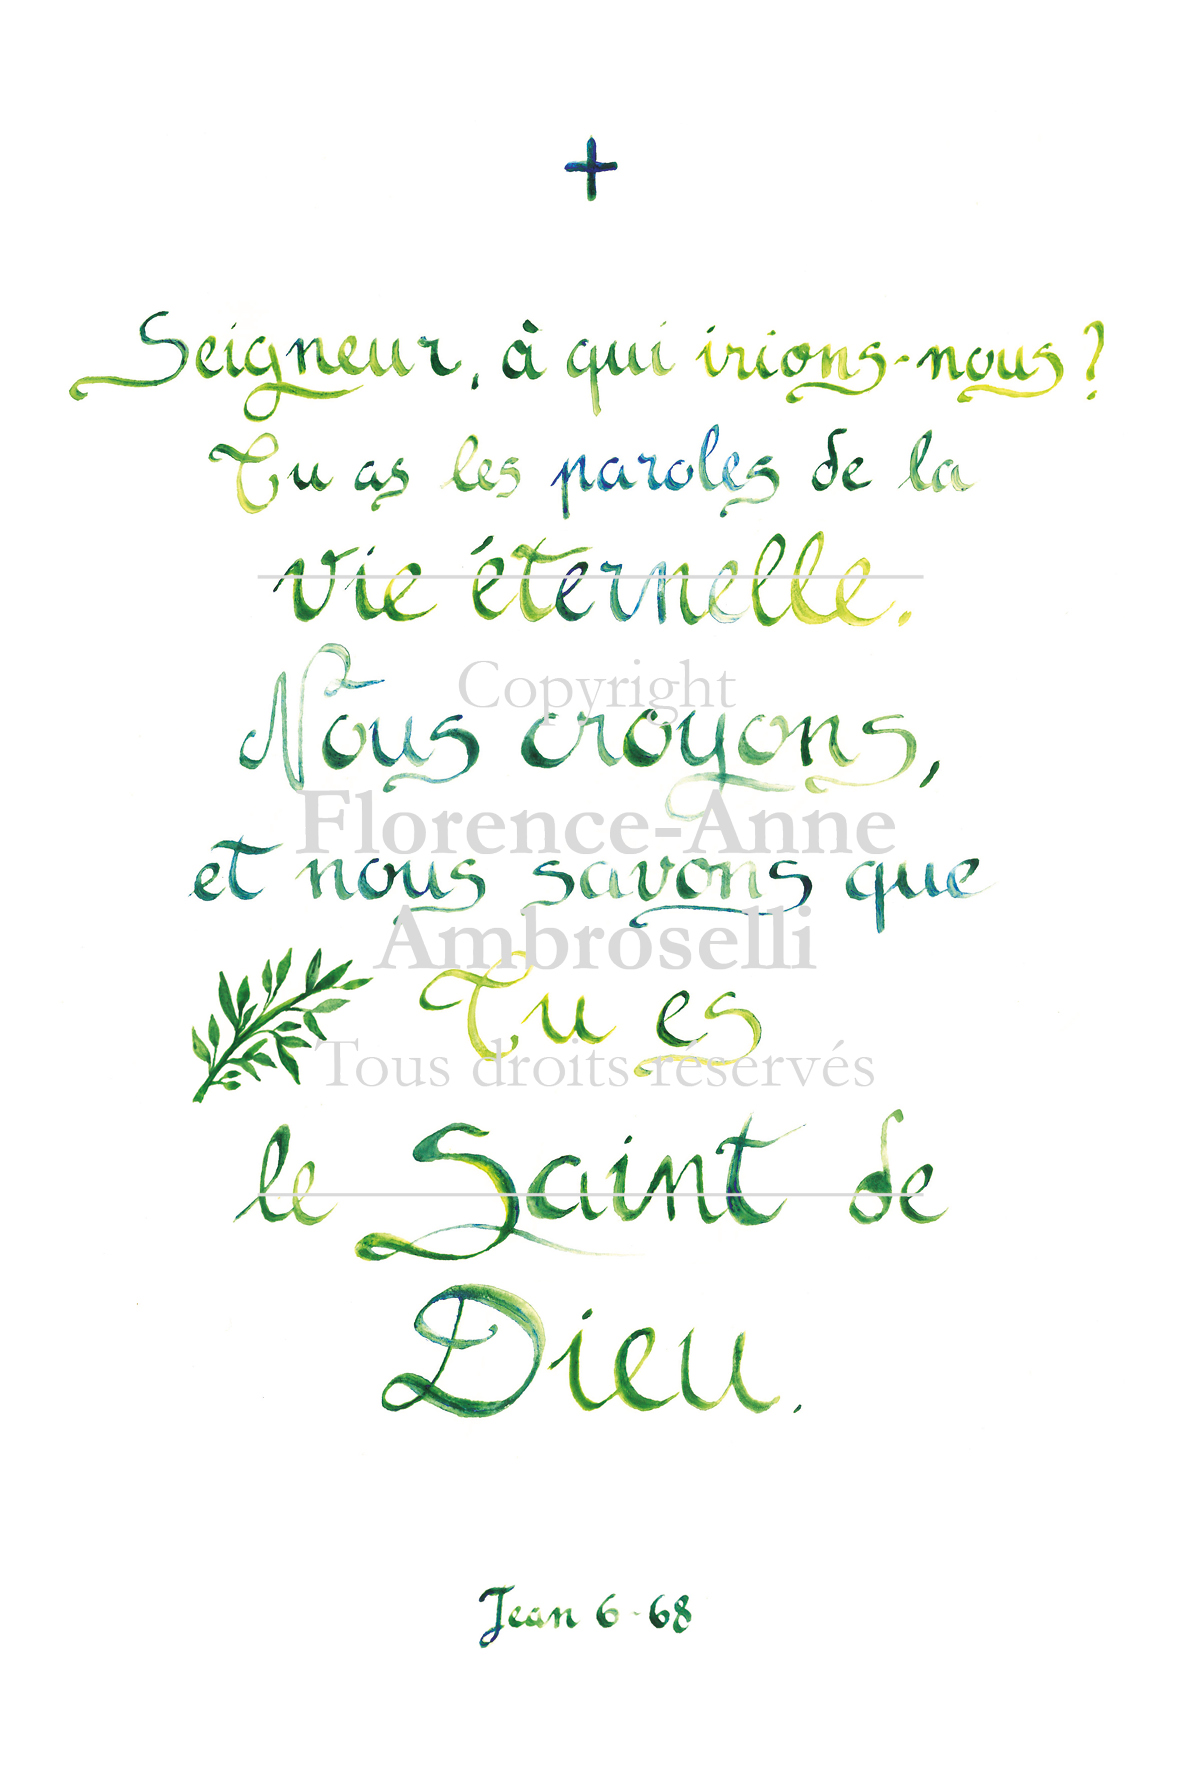 Seigneur, à qui irions-nous ?
Tu as les paroles de la
vie éternelle.
Copyright
Nous croyons,
Florence-Anne
et nous savons que
Ambroselli
Tu es
Tous droits réservés
le Saint de
Dieu.
Jean 6-68